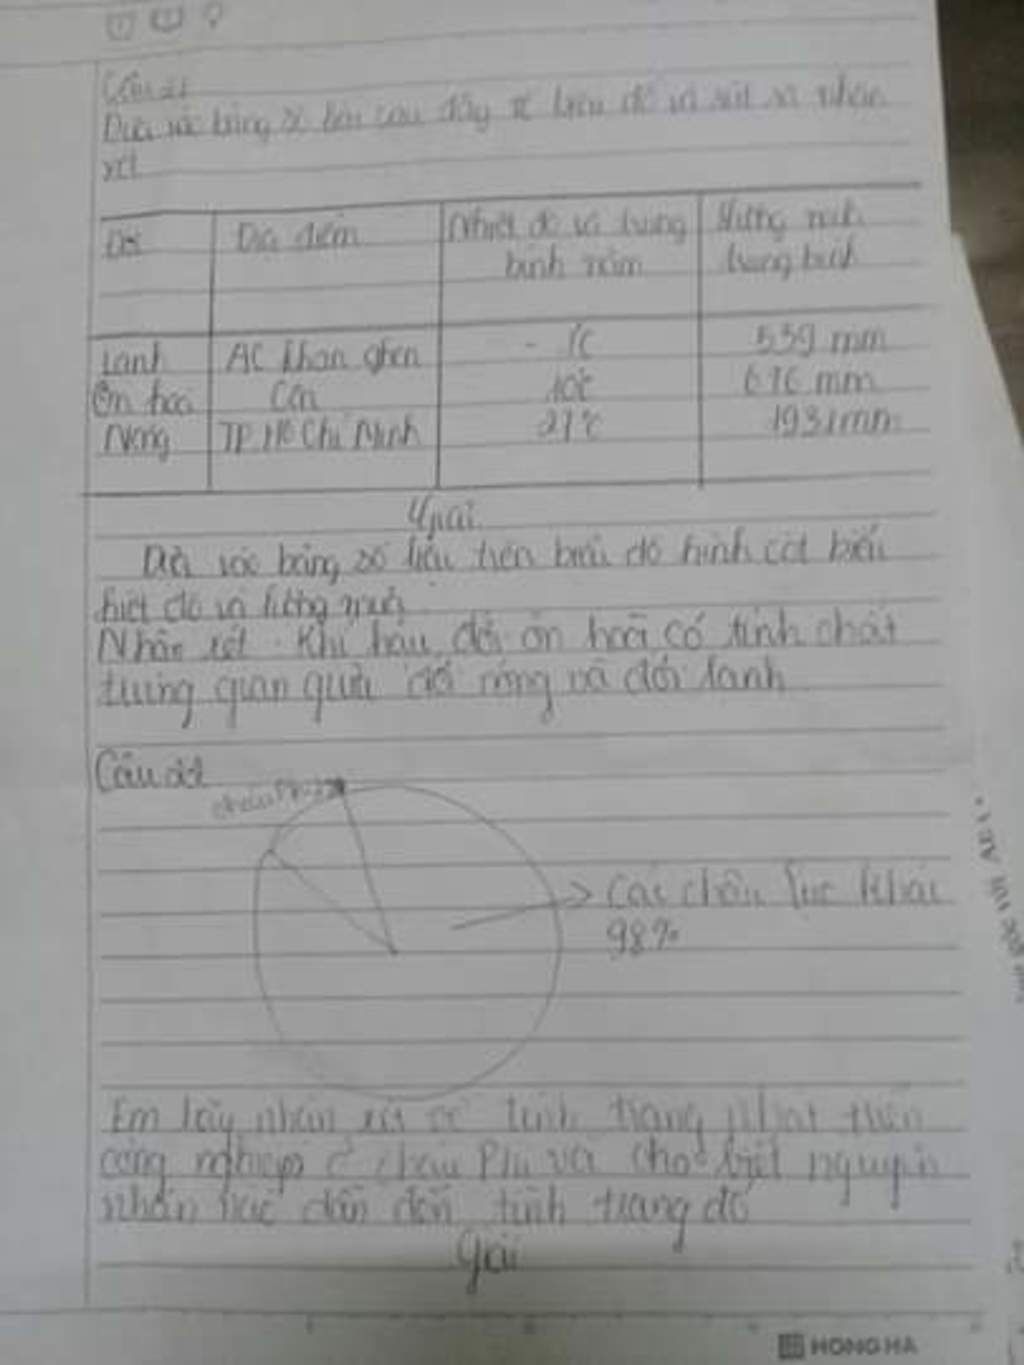 Câu 21
Dựa vào bảng số liệu sau đây
xét
Địa điểm
Nhiệt độ và trung
bình năm
trung bình
Lanh AC khan ghen - 1C 539 mm
Ôn hoà 10℃ 676 mm
Nóng TP Hồ Chí Minh 27℃ 1931mm
Giải
Dựa vào bảng số liệu trên biểu đồ hình cột biểu
hiệt độ và lượng mưa
Nhận xét. Khí hậu đới ôn hoà có tính chất
trung gian giữa đới nóng và đới lanh
Câu 22
châu Phi 2%
Các châu lục khác
98%
Em hãy nhận xét về tình trạng phát triển
công nghiệp ở châu Phi và cho biết nguyên
nhân nào dẫn đến tình trạng đó
Giải
HONG HA